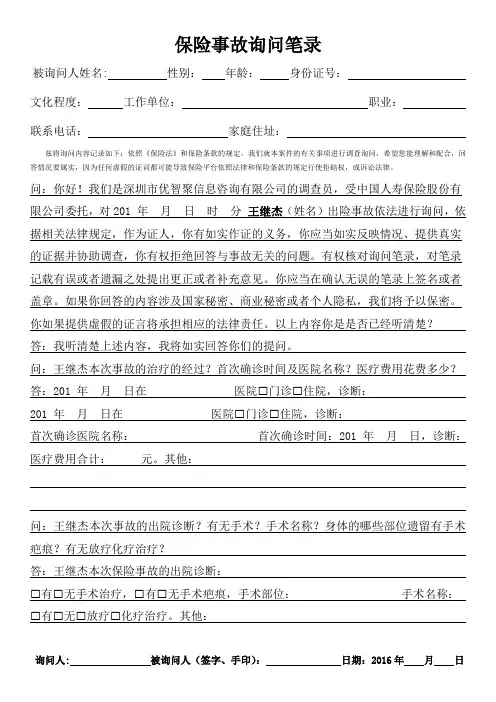 保险事故询问笔录
被询问人姓名: 性别: 年龄: 身份证号:
文化程度: 工作单位: 职业:
联系电话: 家庭住址:
兹将询问内容记录如下：依照《保险法》和保险条款的规定，我们就本案件的有关事项进行调查询问，希望您能理解和配合，回
答情况要属实，因为任何虚假的证词都可能导致保险平台依照法律和保险条款的规定行使拒赔权，或诉讼法律。
问：你好！我们是深圳市优智聚信息咨询有限公司的调查员，受中国人寿保险股份有
限公司委托，对201 年 月 日 时 分 王继杰（姓名）出险事故依法进行询问，依
据相关法律规定，作为证人，你有如实作证的义务，你应当如实反映情况、提供真实
的证据并协助调查，你有权拒绝回答与事故无关的问题。有权核对询问笔录，对笔录
记载有误或者遗漏之处提出更正或者补充意见。你应当在确认无误的笔录上签名或者
盖章。如果你回答的内容涉及国家秘密、商业秘密或者个人隐私，我们将予以保密。
你如果提供虚假的证言将承担相应的法律责任。以上内容你是是否已经听清楚？
答：我听清楚上述内容，我将如实回答你们的提问。
问：王继杰本次事故的治疗的经过？首次确诊时间及医院名称？医疗费用花费多少？
答：201 年 月 日在 医院□门诊□住院，诊断：
201 年 月 日在 医院□门诊□住院，诊断：
首次确诊医院名称： 首次确诊时间：201 年 月 日，诊断：
医疗费用合计： 元。其他：
问：王继杰本次事故的出院诊断？有无手术？手术名称？身体的哪些部位遗留有手术
疤痕？有无放疗化疗治疗？
答：王继杰本次保险事故的出院诊断：
□有□无手术治疗，□有□无手术疤痕，手术部位： 手术名称：
□有□无□放疗□化疗治疗。其他：
询问人: 被询问人（签字、手印）: 日期：2016年 月 日